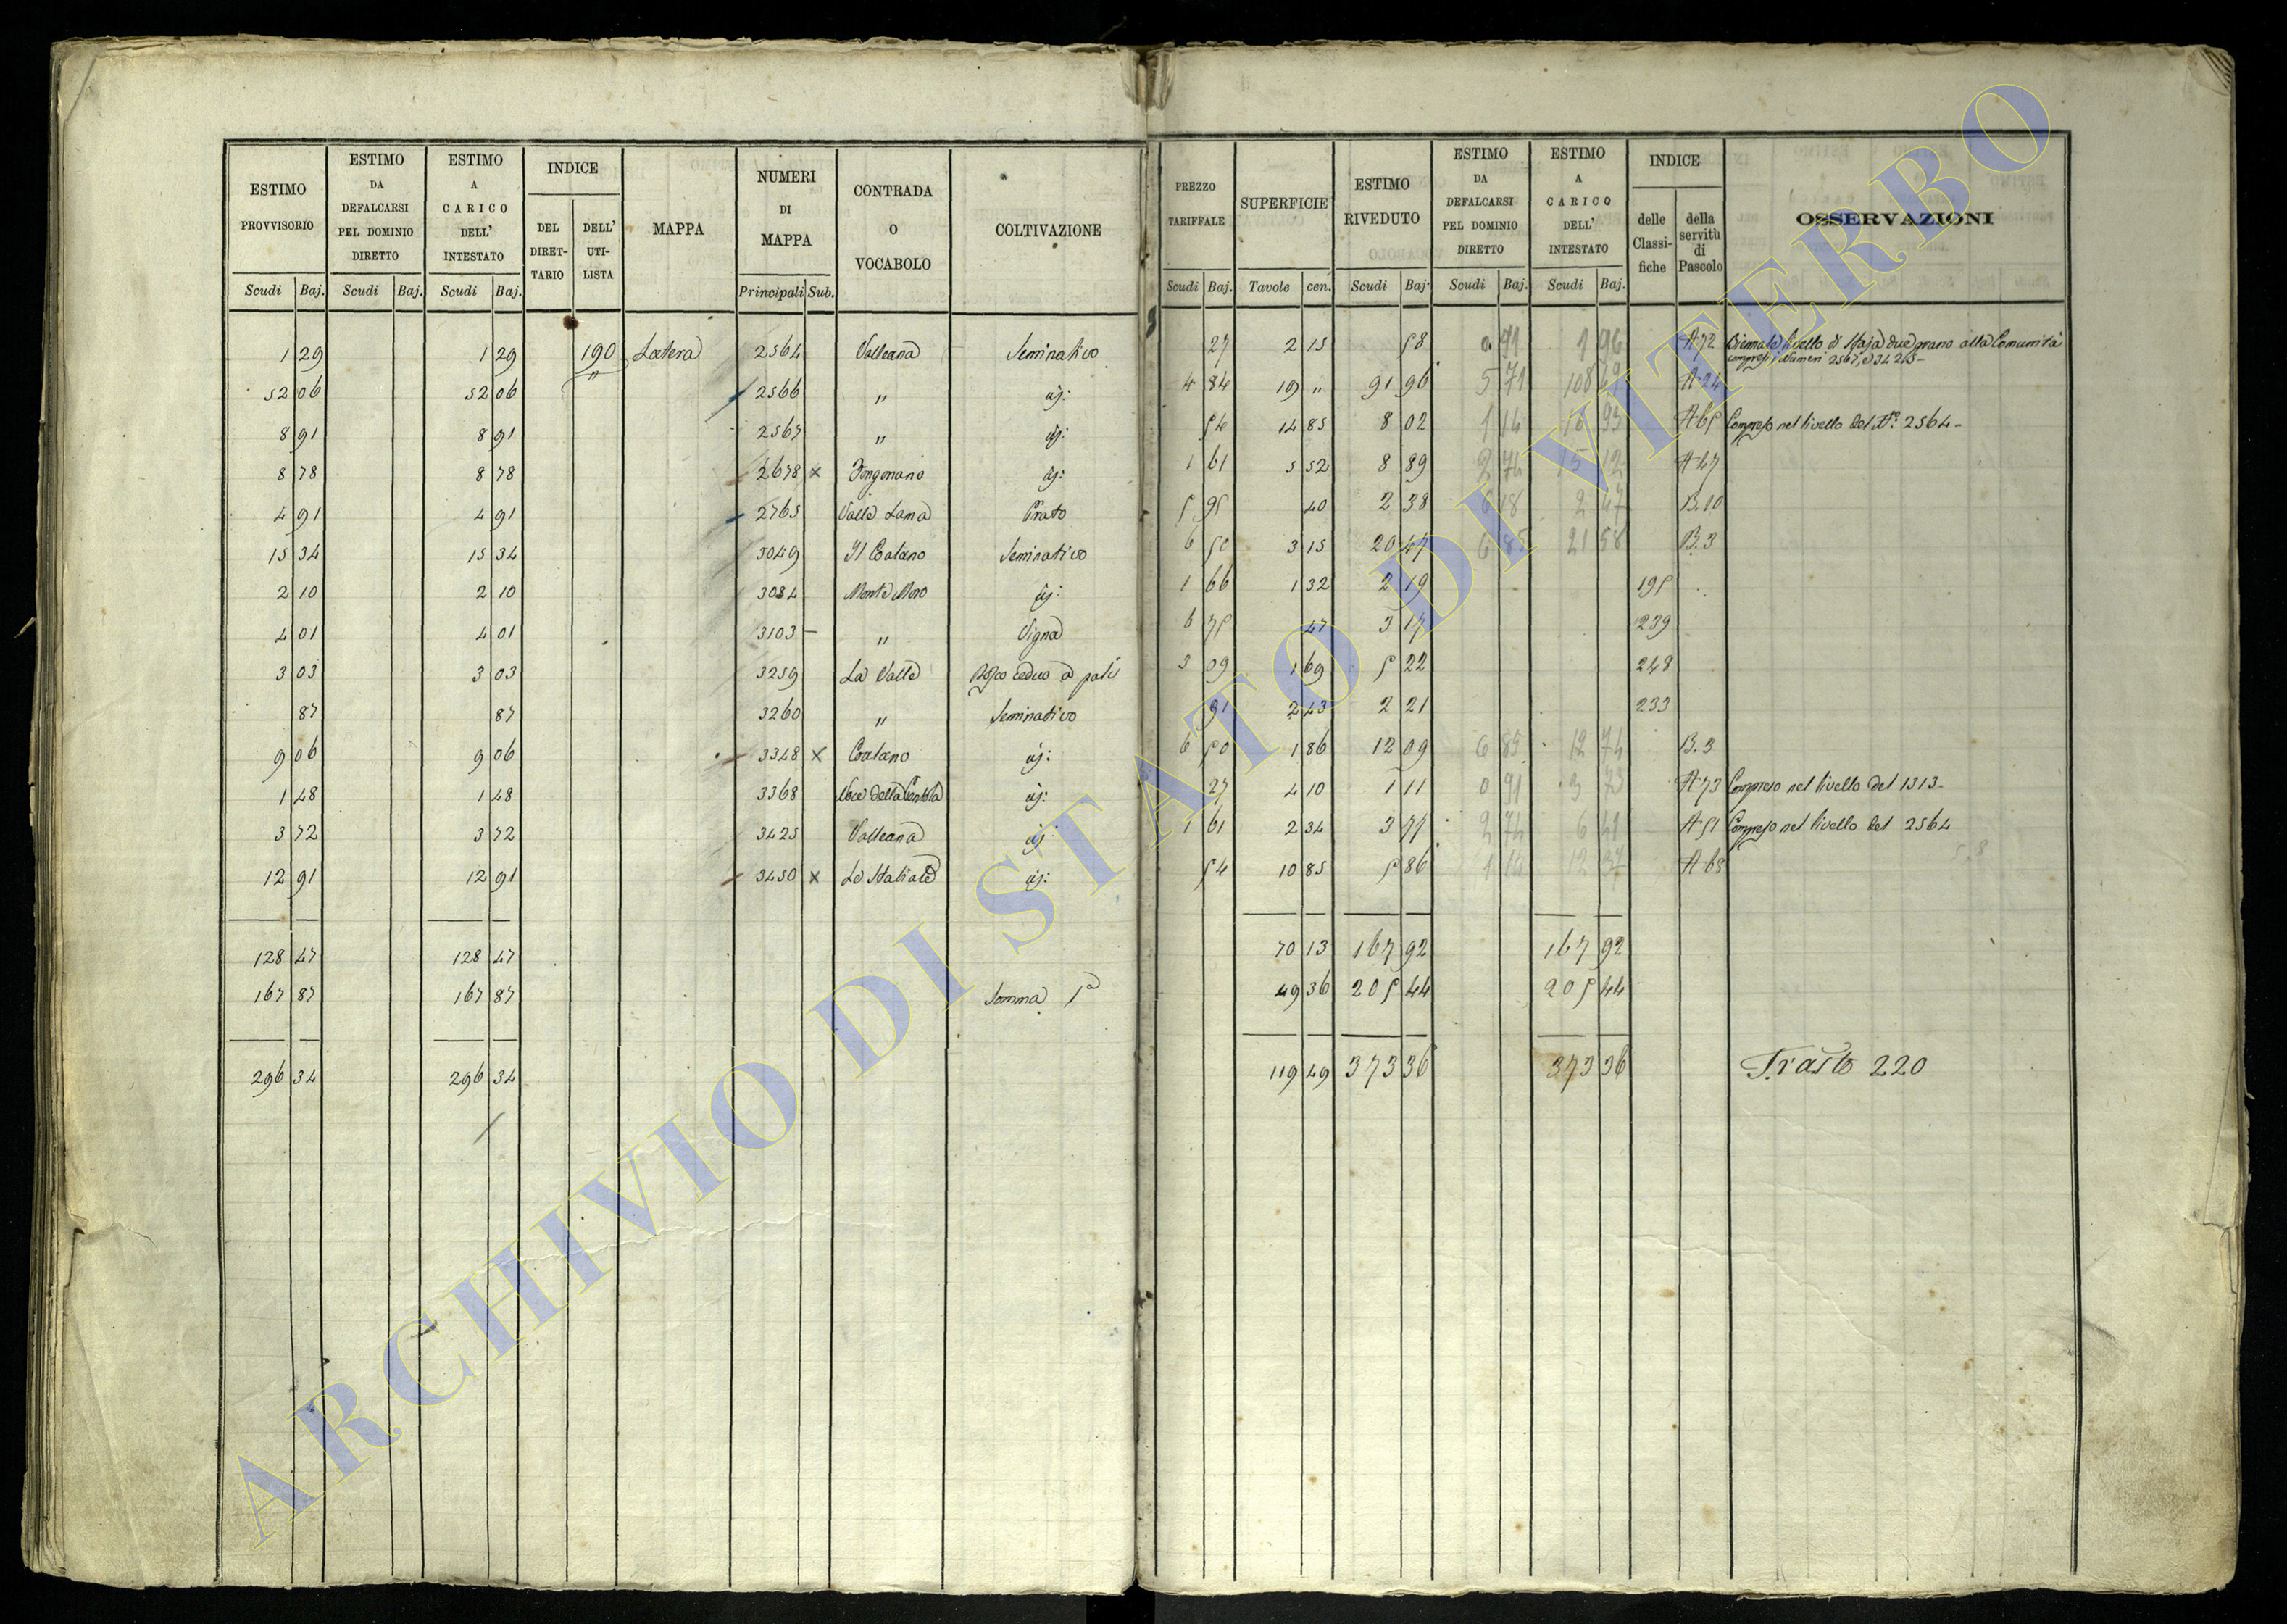 ESTIMO PROVVISORIO | ESTIMO DA DEFALCARSI PEL DOMINIO DIRETTO | ESTIMO A CARICO DELL' INTESTATO | INDICE | MAPPA | NUMERI DI MAPPA | CONTRADA O VOCABOLO | COLTIVAZIONE | PREZZO TARIFFALE | SUPERFICIE | ESTIMO RIVEDUTO | ESTIMO DA DEFALCARSI PEL DOMINIO DIRETTO | ESTIMO A CARICO DELL' INTESTATO | INDICE | OSSERVAZIONI
DEL DIRET-TARIO | DELL' UTI-LISTA | delle Classi-fiche | della servitù di Pascolo
Scudi | Baj. | Scudi | Baj. | Scudi | Baj. | Principali | Sub. | Scudi | Baj. | Tavole | cen. | Scudi | Baj. | Scudi | Baj. | Scudi | Baj.
1 29 | 1 29 | 190 | Latera | 2564 | Valleana | Seminativo | 27 | 2 15 | 58 | 0 91 | 1 96 | A 72 | Biennale livello di Staja due grano alla Comunità
compresi i Numeri 2567, e 3425 -
52 06 | 52 06 | " | 2566 | " | id: | 4 84 | 19 " | 91 96 | 5 71 | 108 | A 24
8 91 | 8 91 | 2567 | " | id: | 54 | 14 85 | 8 02 | 1 14 | 16 93 | A 65 | Compreso nel livello del N.º 2564 -
8 78 | 8 78 | 2678 x | id: | 1 61 | 5 52 | 8 89 | 2 74 | 15 12 | A 47
4 91 | 4 91 | 2765 | Valle Lama | Prato | 5 95 | 40 | 2 38 | 6 18 | 2 47 | B. 10
15 34 | 15 34 | 3049 | Il Coatano | Seminativo | 6 50 | 3 15 | 20 47 | 6 85 | 21 58 | B. 3
2 10 | 2 10 | 3084 | Monte Moro | id: | 1 66 | 1 32 | 2 19 | 195
4 01 | 4 01 | 3103 - | " | Vigna | 6 75 | 47 | 3 17 | 239
3 03 | 3 03 | 3259 | La Valle | Bosco ceduo a pali | 3 09 | 1 69 | 5 22 | 248
87 | 87 | 3260 | " | Seminativo | 91 | 2 43 | 2 21 | 233
9 06 | 9 06 | 3348 x | Coatano | id: | 6 50 | 1 86 | 12 09 | 6 85 | 12 74 | B. 3
1 48 | 1 48 | 3368 | della | id: | 27 | 4 10 | 1 11 | 0 91 | 3 73 | A 73 | Compreso nel livello del 1313 -
3 72 | 3 72 | 3425 | Valleana | id: | 1 61 | 2 34 | 3 77 | 2 74 | 6 41 | A 51 | Compreso nel livello del 2564
12 91 | 12 91 | 3450 x | id: | 54 | 10 85 | 5 86 | 1 14 | 12 37 | A 68
128 47 | 128 47 | 70 13 | 167 92 | 167 92
167 87 | 167 87 | Somma 1ª | 49 36 | 205 44 | 205 44
296 34 | 296 34 | 119 49 | 373 36 | 373 36 | 220
ARCHIVIO DI STATO DI VITERBO